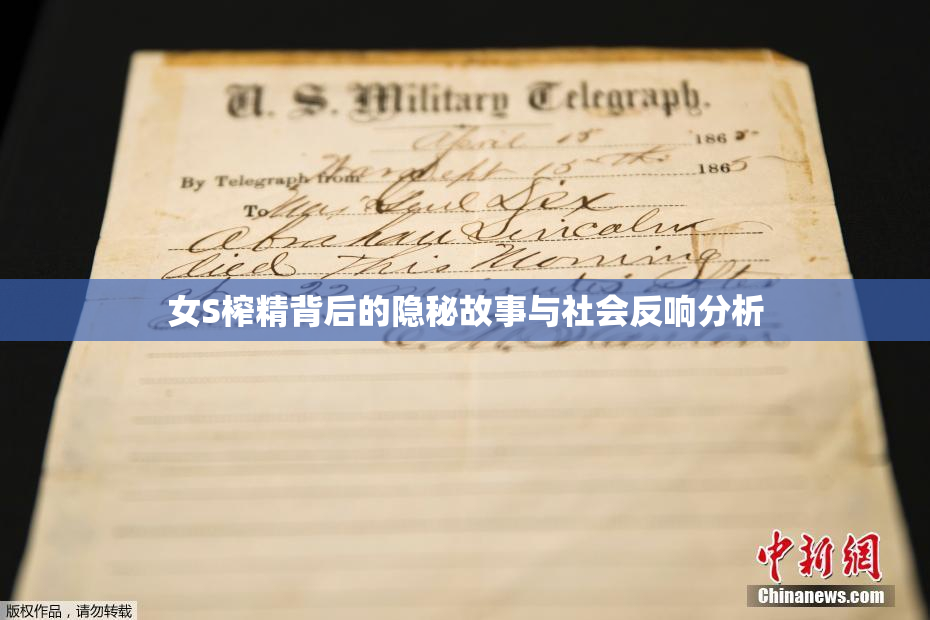 U. S. Military Telegraph.
April 15 1865
By Telegraph from War Dept 15th 1865
To Maj Genl Dix
Abraham Lincoln
died This Morning
at 22 minutes after
女S榨精背后的隐秘故事与社会反响分析
E. M. Stanton
中新网
Chinanews.com
版权作品，请勿转载